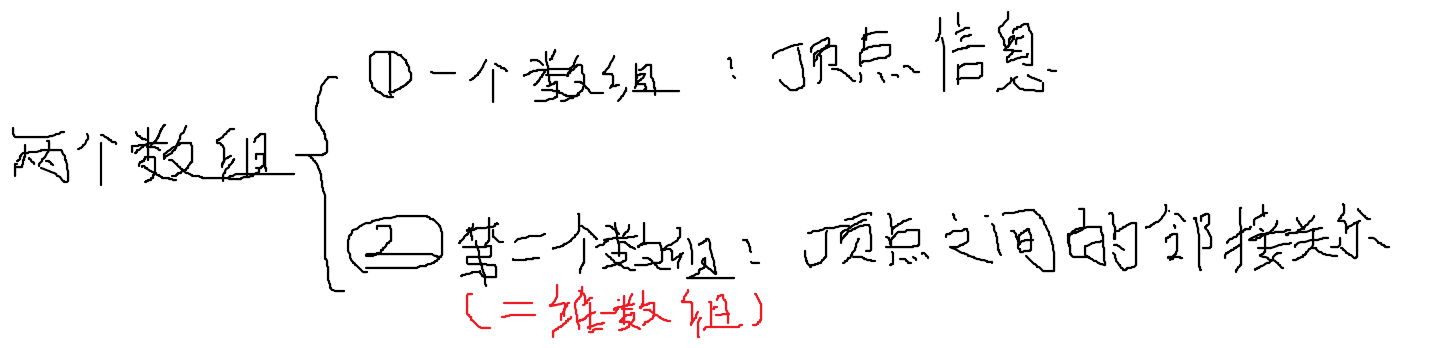 两个数组
①一个数组：顶点信息
②第二个数组：顶点之间的邻接关系
(二维数组)